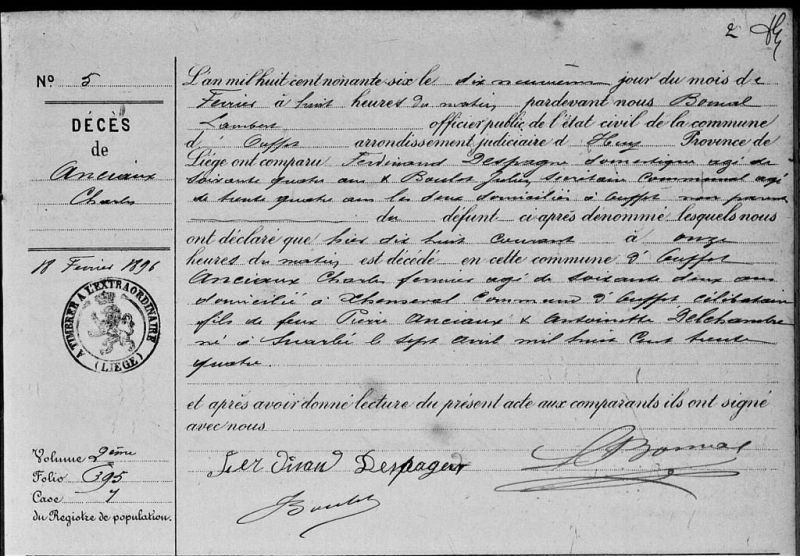 2
Nº 5
DÉCÈS
de
Anciaux
Charles
18 Fevrier 1896
A TIMBRER A L'EXTRAORDINAIRE
(LIÉGE)
Volume 2ème
Folio 395
Case 7
du Registre de population.
L'an mil huit cent nonante six le dix neuvième jour du mois de
Fevrier à huit heures du matin pardevant nous Bonnal
Lambert officier public de l'état civil de la commune
d' Ouffet arrondissement judiciaire d' Huy Province de
Liége ont comparu Ferdinand Despagne domestique agé de
soixante quatre ans & Boulot Jules, secrétaire communal agé
de trente quatre ans les deux domiciliés à Ouffet non parents
du défunt ci-après dénommé, lesquels nous
ont déclaré que hier dix huit courant à onze
heures du matin est décédé en cette commune d' Ouffet
Anciaux Charles fermier agé de soixante deux ans
domicilié à Xhenceval Commune d' Ouffet célibataire
fils de feux Pierre Anciaux & Antoinette Delchambre
né à Suarlée le sept avril mil huit cent trente
quatre.
et après avoir donné lecture du présent acte aux comparants ils ont signé
avec nous
Despagen
Boulot
Bonnal